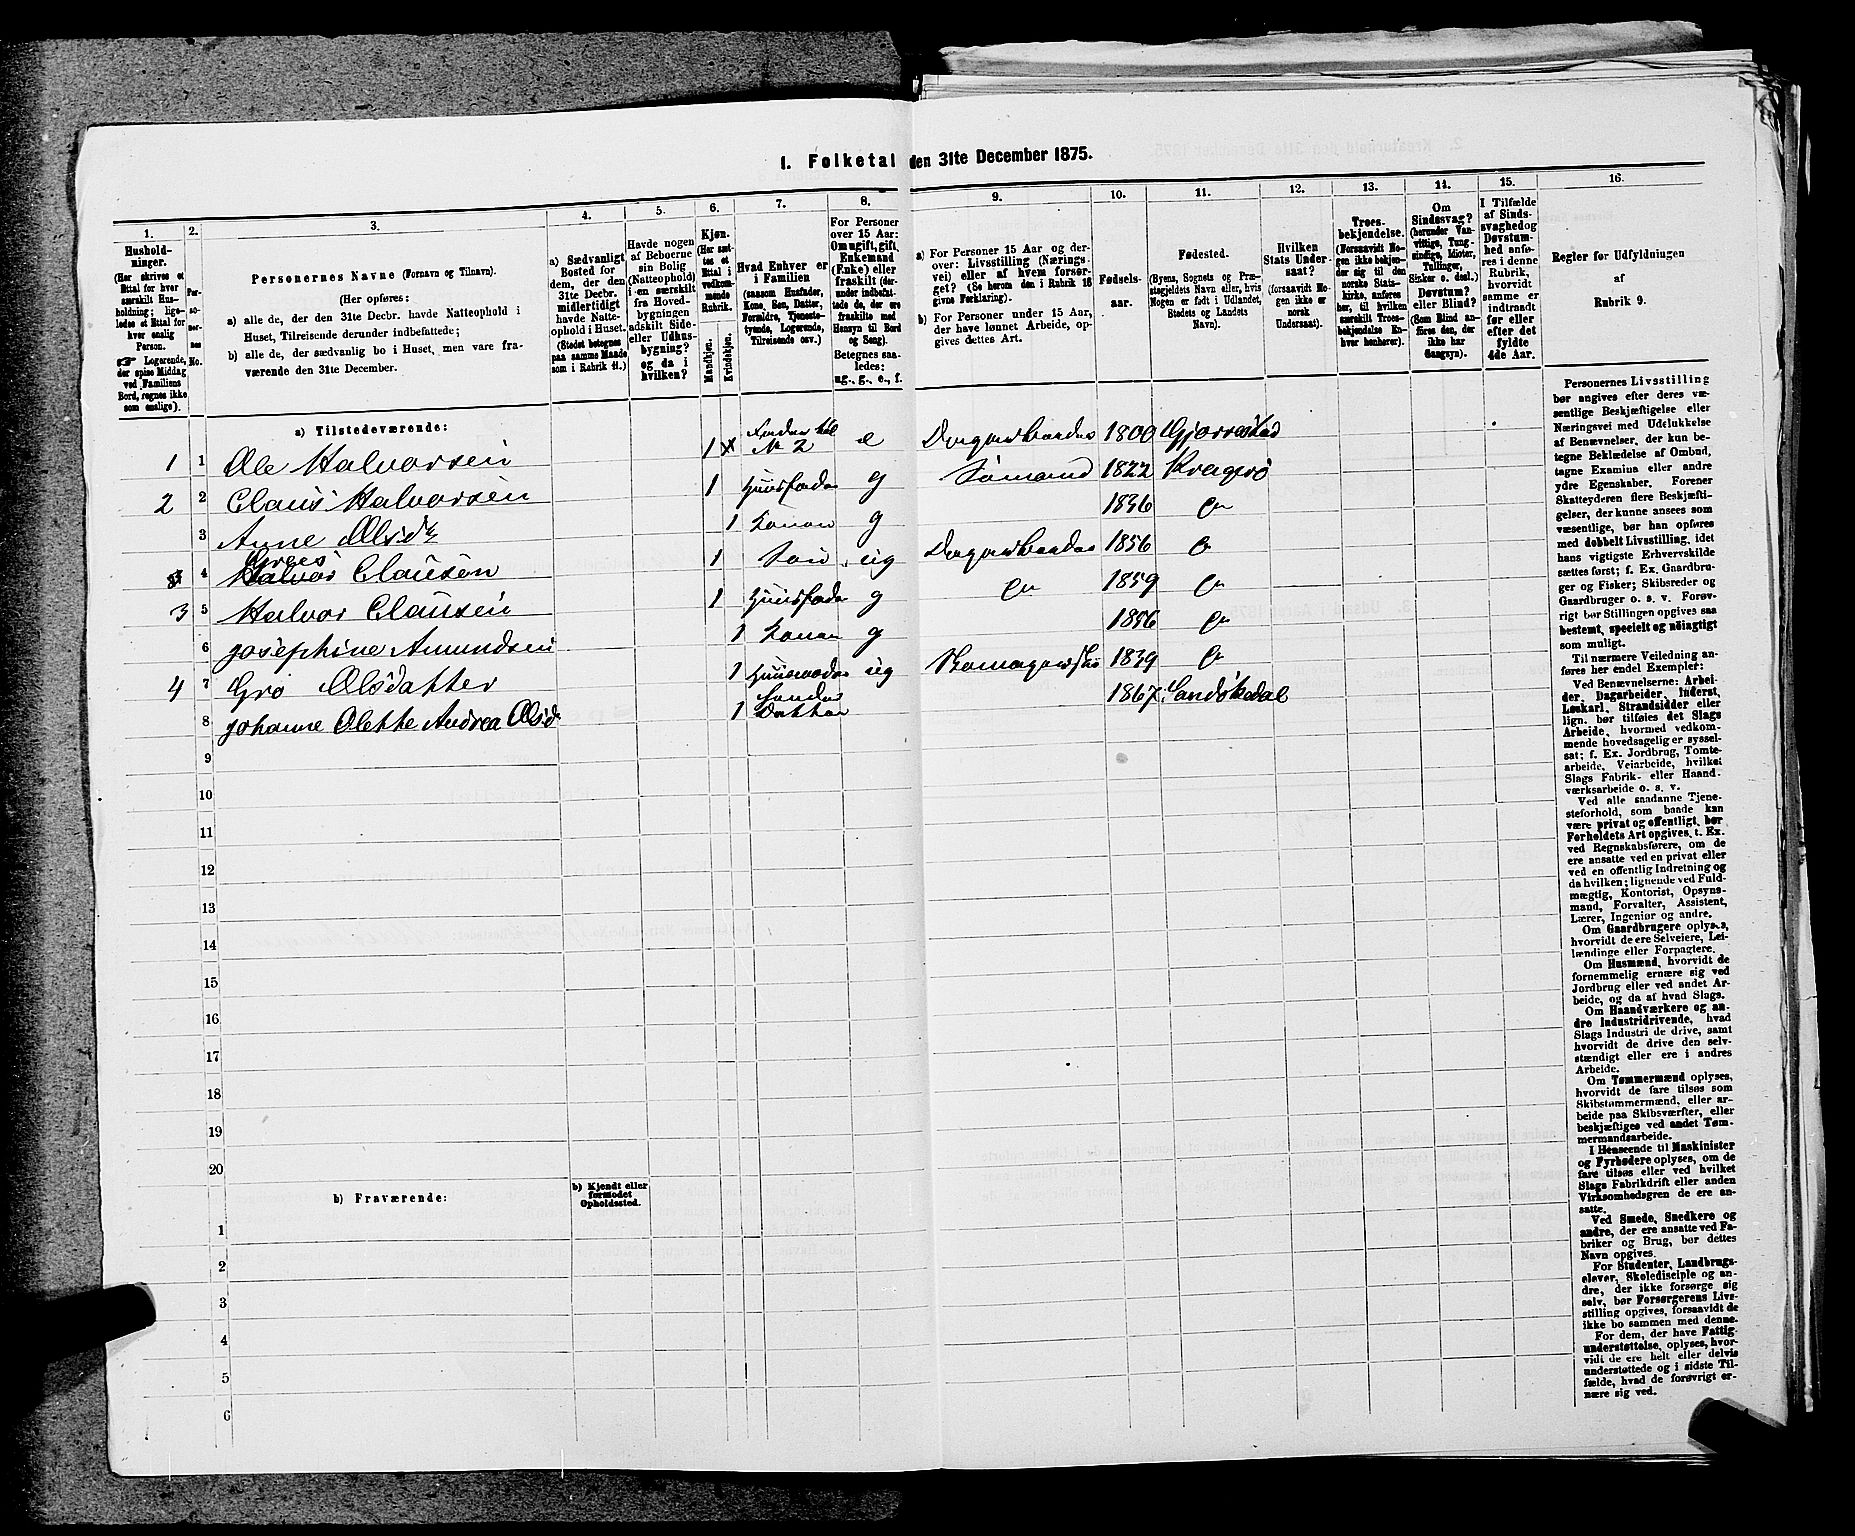 1. Folketal den 31te December 1875.
1.
Hushold-
ninger.
(Her skrives et
Ettal for hver
særskilt Hus-
holdning; lige-
ledes et Ettal for
hver enslig
Person.
☞ Logerende,
der spise Middag
ved Familiens
Bord, regnes ikke
som enslige).
2.
Per-
so-
ner-
nes
No.
3.
Personernes Navne (Fornavn og Tilnavn).
(Her opføres:
a) alle de, der den 31te Decbr. havde Natteophold i
Huset, Tilreisende derunder indbefattede;
b) alle de, der sædvanlig bo i Huset, men vare fra-
værende den 31te December.
4.
a) Sædvanligt
Bosted for
dem, der den
31te Decbr.
midlertidigt
havde Natte-
ophold i Huset.
(Stedet betegnes
paa samme Maade
som i Rubrik 11.)
5.
Havde nogen
af Beboerne
sin Bolig
(Natteophold)
i en særskilt
fra Hoved-
bygningen
adskilt Side-
eller Udhus-
bygning?
og da i
hvilken?
6.
Kjøn.
(Her sæt-
tes et
Ettal i
vedkom-
mende
Rubrik.
Mandkjøn.
Kvindekjøn.
7.
Hvad Enhver er
i Familien
(saasom Husfader,
Kone, Søn, Datter,
Forældre, Tjeneste-
tyende, Logerende,
Tilreisende osv.)
8.
For Personer
over 15 Aar:
Om ugift, gift,
Enkemand
(Enke) eller
fraskilt (der-
under indbefat-
tede de, der ere
fraskilte med
Hensyn til Bord
og Seng).
Betegnes saa-
ledes:
ug., g., e., f.
9.
a) For Personer 15 Aar og der-
over: Livsstilling (Nærings-
vei) eller af hvem forsør-
get? (Se herom den i Rubrik 16
givne Forklaring).
b) For Personer under 15 Aar,
der have lønnet Arbeide, op-
gives dettes Art.
10.
Fødsels-
aar.
11.
Fødested.
(Byens, Sognets og Præ-
stegjeldets Navn eller, hvis
Nogen er født i Udlandet,
Stedets og Landets
Navn).
12.
Hvilken
Stats Under-
saat?
(forsaavidt No-
gen ikke er
norsk
Undersaat).
13.
Troes-
bekjendelse.
(Forsaavidt No-
gen ikke bekjen-
der sig til den
norske Stats-
kirke, anføres
her, til hvilken
særskilt Troes-
bekjendelse En-
hver henhører).
14.
Om
Sindssvag?
(herunder Van-
vittige, Tung-
sindige, Idioter,
Tullinger,
Sinker o. desl.)
Døvstum?
eller Blind?
(Som Blind an-
føres den, der
ikke har
Gangsyn).
15.
I Tilfælde
af Sinds-
svaghed og
Døvstum-
hed anfø-
res i denne
Rubrik,
hvorvidt
samme er
indtraadt
før eller
efter det
fyldte
4de Aar.
16.
Regler for Udfyldningen
af
Rubrik 9.
a) Tilstedeværende:
1 1 Ole Halvorsen 1 x Fader til No 2 e 1800 Gjerrestad
2 2 Claus Halvorsen 1 Huusfader g Sømand 1822 Kragerø
3 Anne Olsdr 1 Konen g 1836 do
4 Halvor Clausen 1 Søn ug 1856 do
3 5 Halvor Clausen 1 Huusfader g do 1859 do
6 Josephine Amundsen 1 Konen g 1856 do
4 7 Gro Olsdatter 1 ug 1839 do
8 Johanne Olette Andrea Olsd 1 Datter 1867 Sandøkedal
9
10
11
12
13
14
15
16
17
18
19
20
b) Fraværende:
b) Kjendt eller
formodet
Opholdssted.
1
2
3
4
5
6
Personernes Livsstilling
bør angives efter deres væ-
sentlige Beskjæftigelse eller
Næringsvei med Udelukkelse
af Benævnelser, der kun be-
tegne Beklædelse af Ombud,
tagne Examina eller andre
ydre Egenskaber. Forener
Skatteyderen flere Beskjæfti-
gelser, der kunne ansees som
væsentlige, bør han opføres
med dobbelt Livsstilling, idet
hans vigtigste Erhvervskilde
sættes først; f. Ex. Gaardbru-
ger og Fisker; Skibsreder og
Gaardbruger o. s. v. Forøv-
rigt bør Stillingen opgives saa
bestemt, specielt og nøiagtigt
som muligt.
Til nærmere Veiledning an-
føres her endel Exempler:
Ved Benævnelserne: Arbei-
der, Dagarbeider, Inderst,
Løskarl, Strandsidder eller
lign. bør tilføies det Slags
Arbeide, hvormed vedkom-
mende hovedsagelig er syssel-
sat; f. Ex. Jordbrug, Tomte-
arbeide, Veiarbeide, hvilket
Slags Fabrik- eller Haand-
værksarbeide o. s. v.
Ved alle saadanne Tjene-
steforhold, som baade kan
være privat og offentligt, bør
Forholdets Art opgives, t. Ex.
ved Regnskabsførere, om de
ere ansatte ved en privat eller
ved en offentlig Indretning og
da hvilken; lignende ved Fuld-
mægtig, Kontorist, Opsyns-
mand, Forvalter, Assistent,
Lærer, Ingeniør og andre.
Om Gaardbrugere oplyses,
hvorvidt de ere Selveiere, Lei-
lændinge eller Forpagtere.
Om Husmænd, hvorvidt de
fornemmelig ernære sig ved
Jordbrug eller ved andet Ar-
beide, og da af hvad Slags.
Om Haandværkere og an-
dre Industridrivende, hvad
Slags Industri de drive, samt
hvorvidt de drive den selv-
stændigt eller ere i andres
Arbeide.
Om Tømmermænd oplyses,
hvorvidt de fare tilsøs som
Skibstømmermænd, eller ar-
beide paa Skibsværfter, eller
beskjæftiges ved andet Tøm-
mermandsarbeide.
I Henseende til Maskinister
og Fyrbødere oplyses, om de
fare tilsøs eller ved hvilket
Slags Fabrikdrift eller anden
Virksomhedsgren de ere an-
satte.
Ved Smede, Snedkere og
andre, der ere ansatte ved Fa-
briker og Brug, bør dettes
Navn opgives.
For Studenter, Landbrugs-
elever, Skoledisciple og an-
dre, der ikke forsørge sig
selv, bør Forsørgerens Livs-
stilling opgives, forsaavidt de
ikke bo sammen med denne.
For dem, der have Fattig-
understøttelse, oplyses, hvor-
vidt de ere helt eller delvis
understøttede og i sidste Til-
fælde, hvad de forøvrigt er-
nære sig ved.